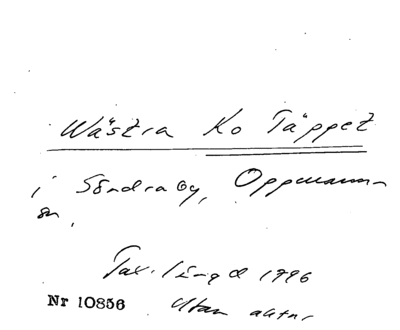 Wästra Ko Täppet
i Söndraby, Oppmann-
sn.
Tax. längd 1796
Nr 10856 Utan aktnr